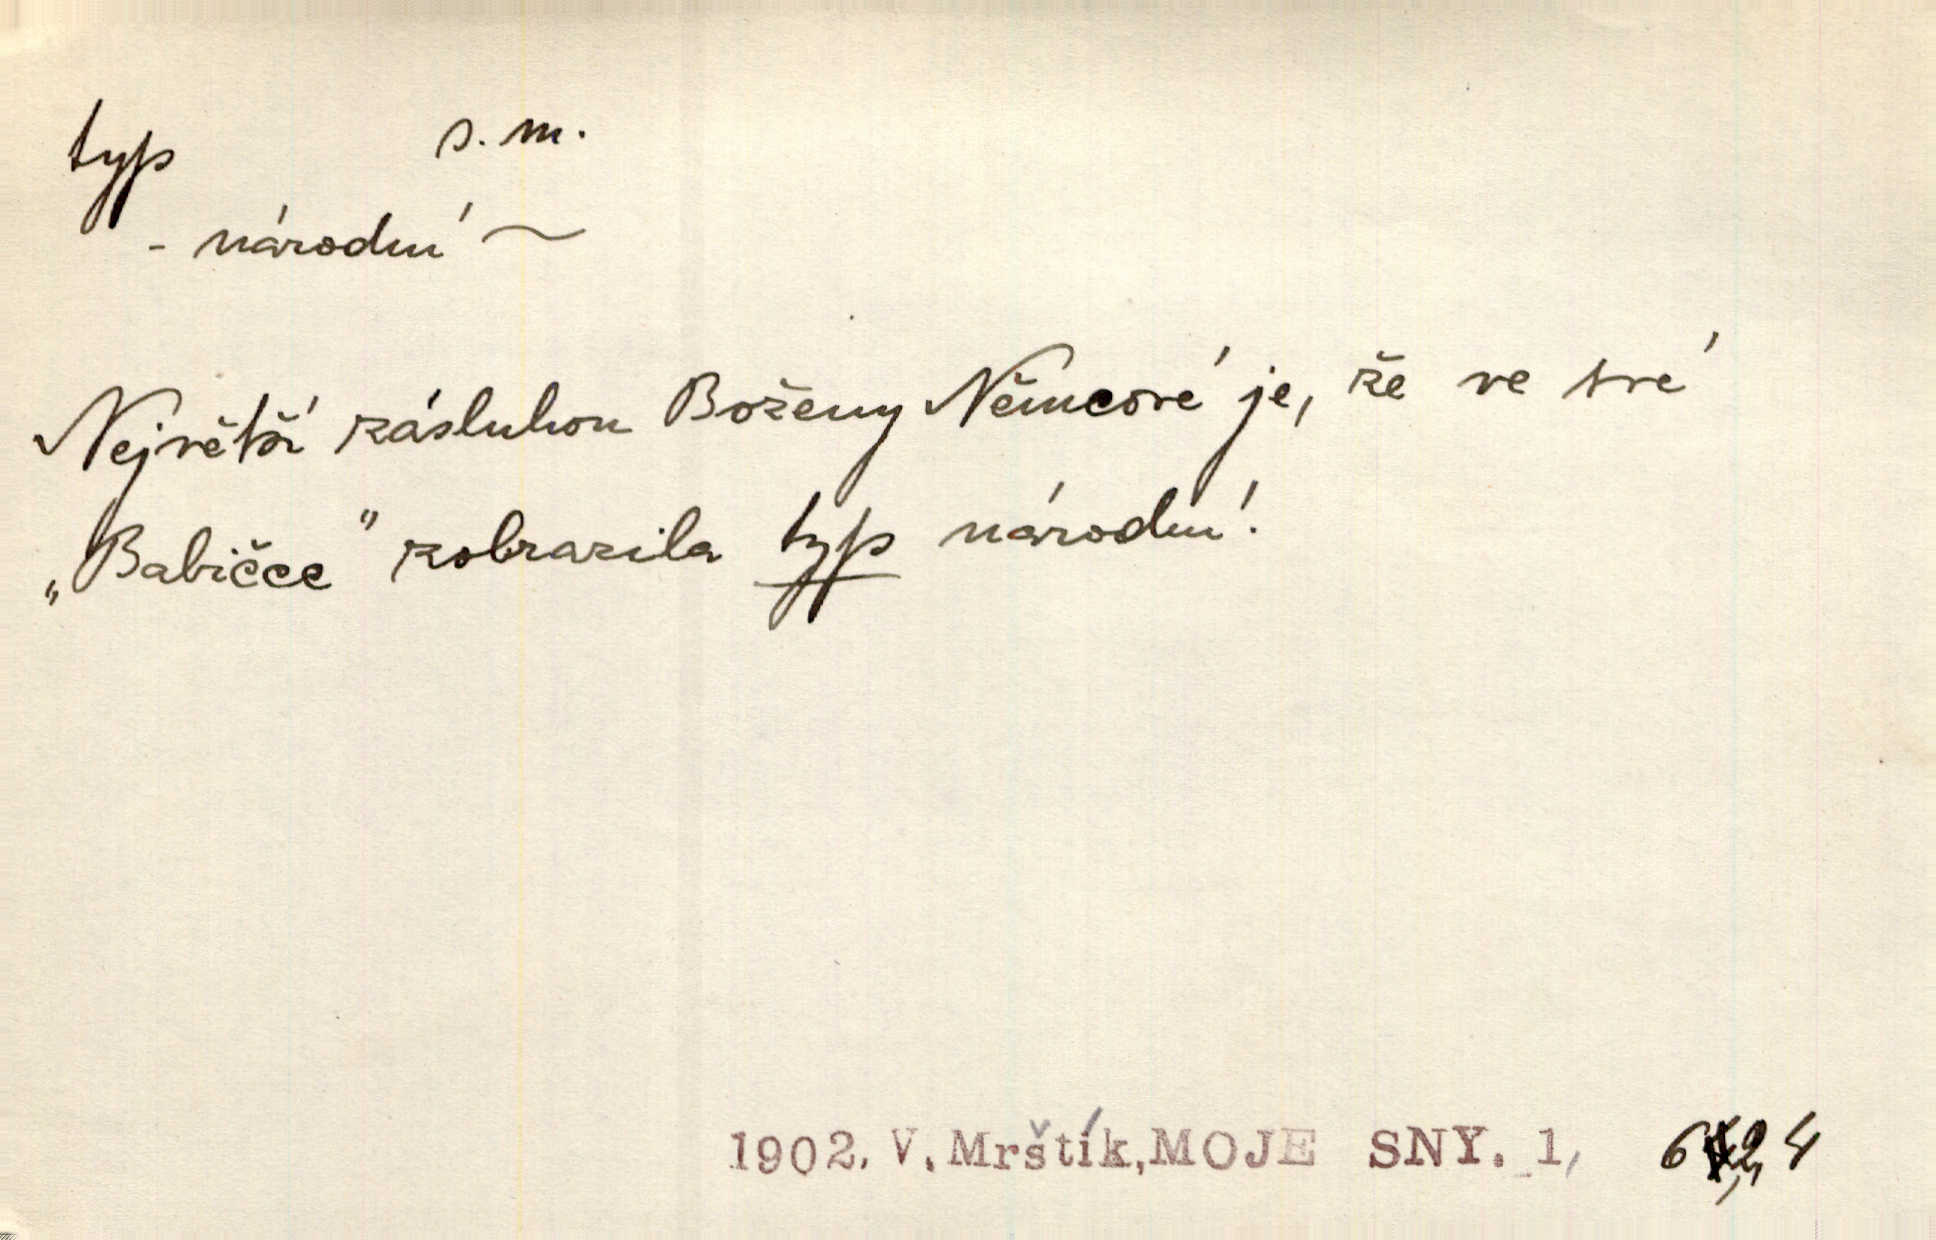 typ s. m.
- národní ~
Největší zásluhou Boženy Němcové je, že ve své
„Babičce" zobrazila typ národní.
1902. V. Mrštík, MOJE SNY. 1,